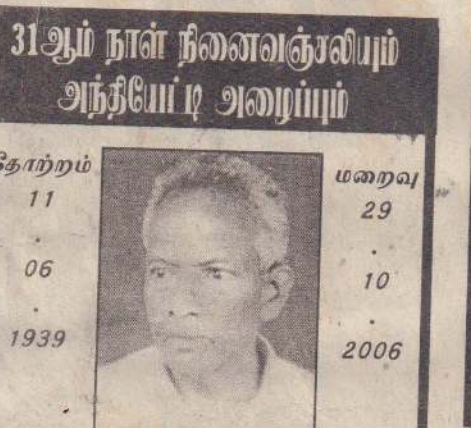 31ஆம் நாள் நினைவஞ்சலியும்
அந்தியேட்டி அழைப்பும்
தோற்றம்
11
.
06
.
1939
மறைவு
29
.
10
.
2006